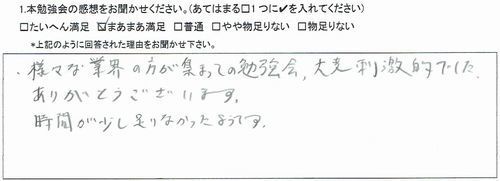 1.本勉強会の感想をお聞かせください。(あてはまる□1つに✔を入れてください)
□たいへん満足 ☑まあまあ満足 □普通 □やや物足りない □物足りない
*上記のように回答された理由をお聞かせ下さい。
・様々な業界の方が集まっての勉強会、大変刺激的でした。
ありがとうございます。
時間が少し足りなかったようです。